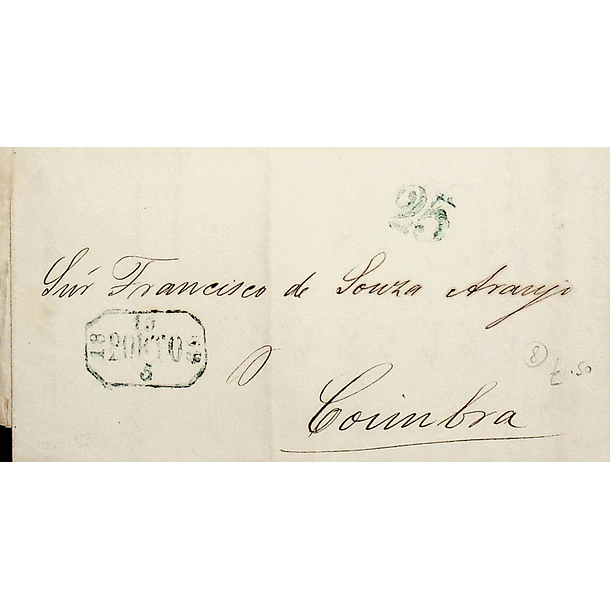 25
Snr Francisco de Souza Araujo
15
18 PORTO
5
Coimbra
8
£1.50